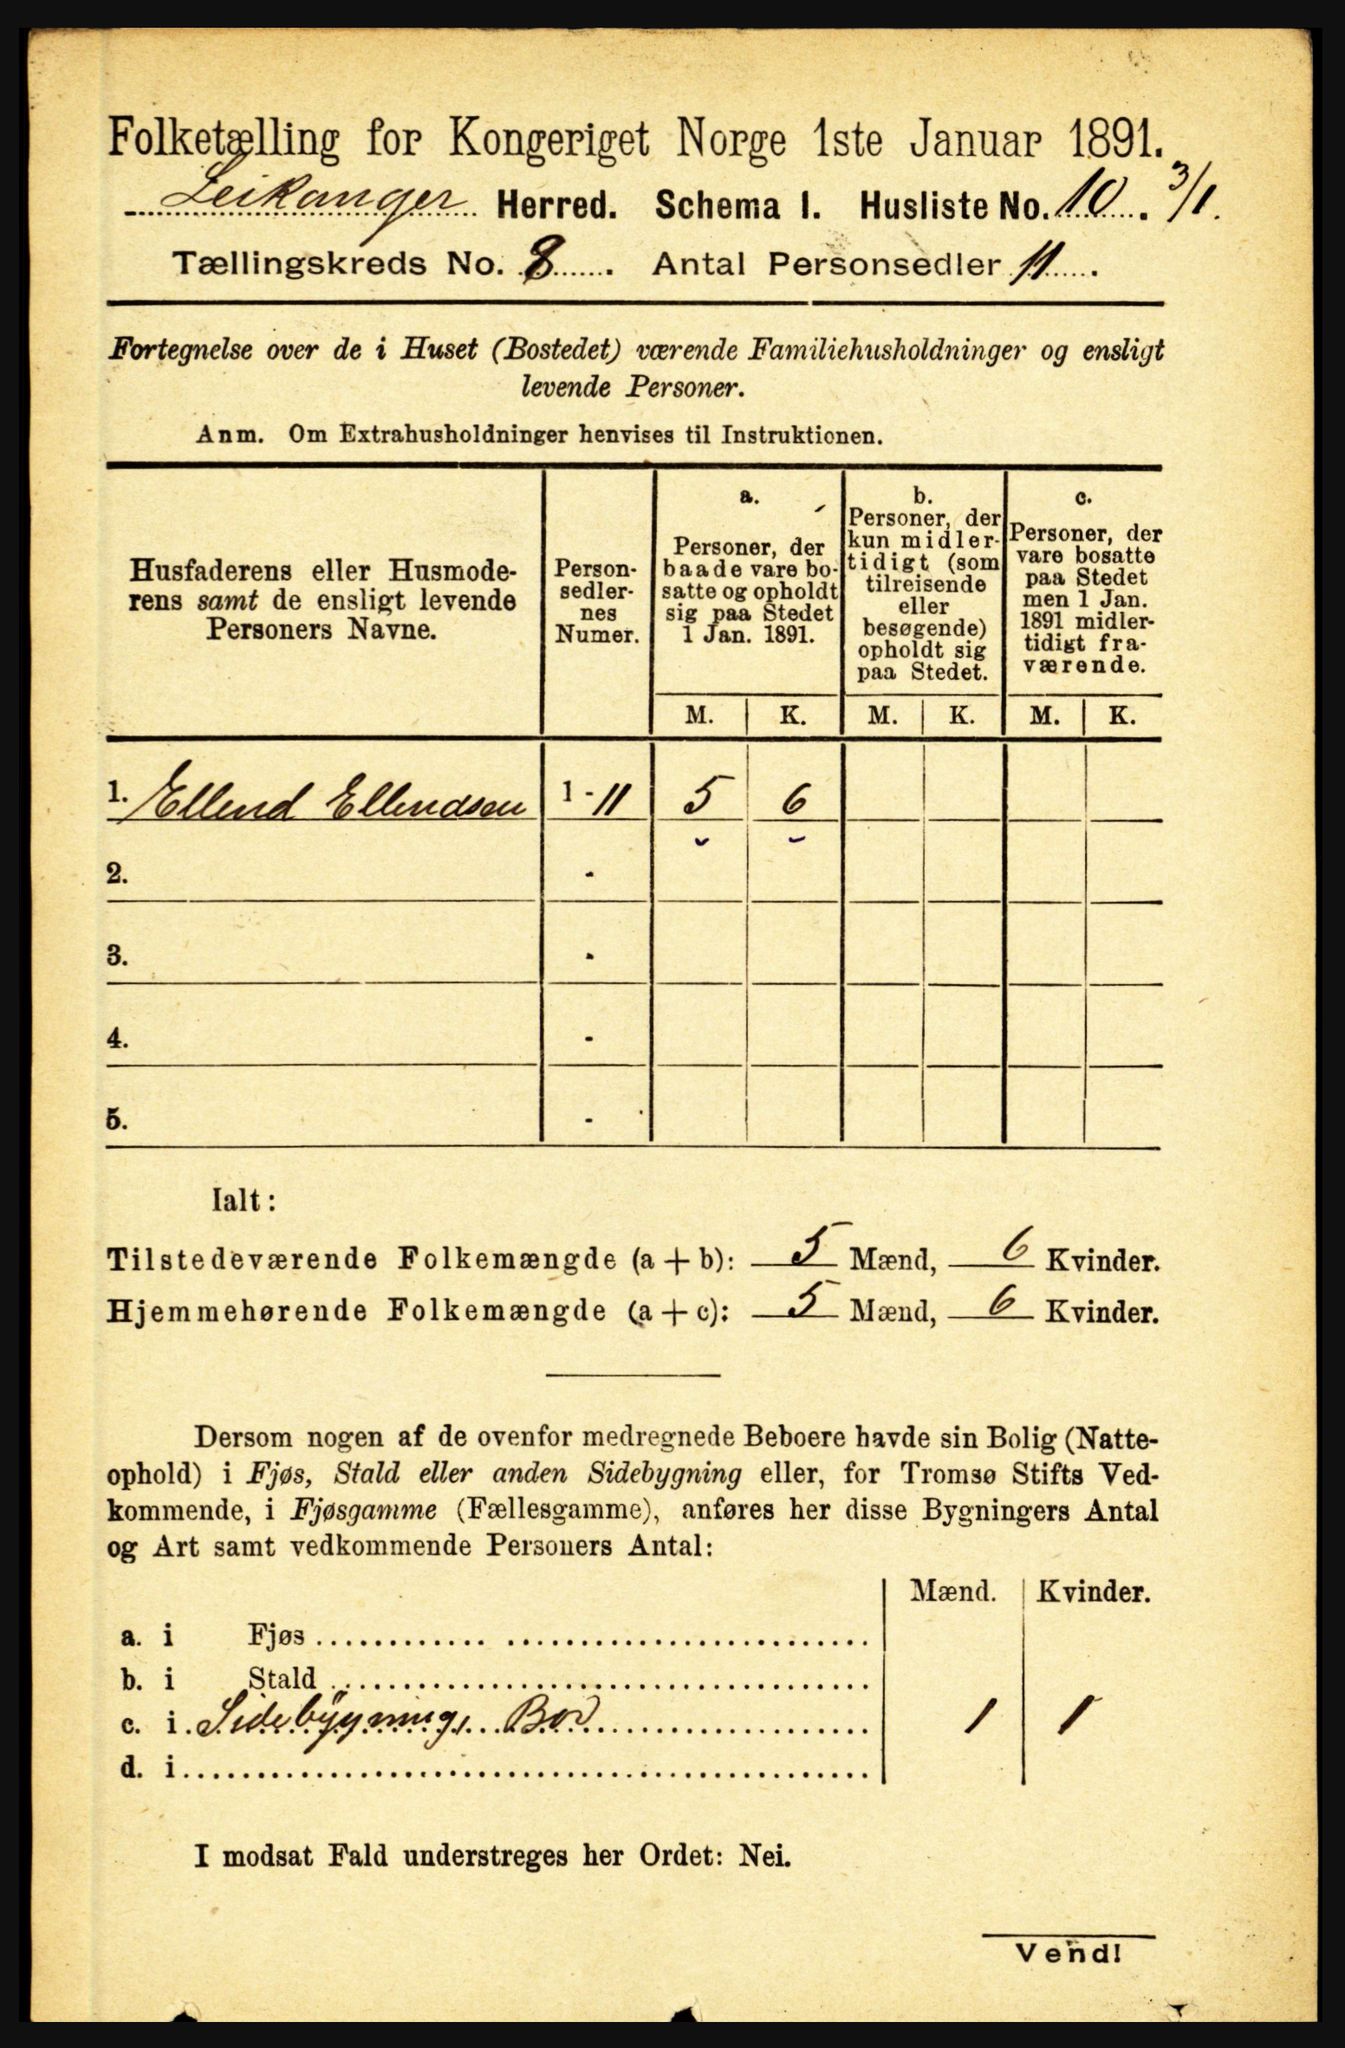 Folketælling for Kongeriget Norge 1ste Januar 1891.
Leikanger Herred. Schema I. Husliste No. 10. 3/1.
Tællingskreds No. 8. Antal Personsedler 11.
Fortegnelse over de i Huset (Bostedet) værende Familiehusholdninger og ensligt
levende Personer.
Anm. Om Extrahusholdninger henvises til Instruktionen.
Husfaderens eller Husmode-
rens samt de ensligt levende
Personers Navne.
Person-
sedler-
nes
Numer.
a.
Personer, der
baade vare bo-
satte og opholdt
sig paa Stedet
1 Jan. 1891.
b.
Personer, der
kun midler-
tidigt (som
tilreisende
eller
besøgende)
opholdt sig
paa Stedet.
c.
Personer, der
vare bosatte
paa Stedet
men 1 Jan.
1891 midler-
tidigt fra-
værende.
M. K. M. K. M. K.
1. Ellend Ellendsen 1-11 5 6
2. -
3. -
4. -
5. -
Ialt:
Tilstedeværende Folkemængde (a + b): 5 Mænd, 6 Kvinder.
Hjemmehørende Folkemængde (a + c): 5 Mænd, 6 Kvinder.
Dersom nogen af de ovenfor medregnede Beboere havde sin Bolig (Natte-
ophold) i Fjøs, Stald eller anden Sidebygning eller, for Tromsø Stifts Ved-
kommende, i Fjøsgamme (Fællesgamme), anføres her disse Bygningers Antal
og Art samt vedkommende Personers Antal:
Mænd. Kvinder.
a. i Fjøs
b. i Stald
c. i Sidebygning, Bod 1 1
d. i
I modsat Fald understreges her Ordet: Nei.
Vend!